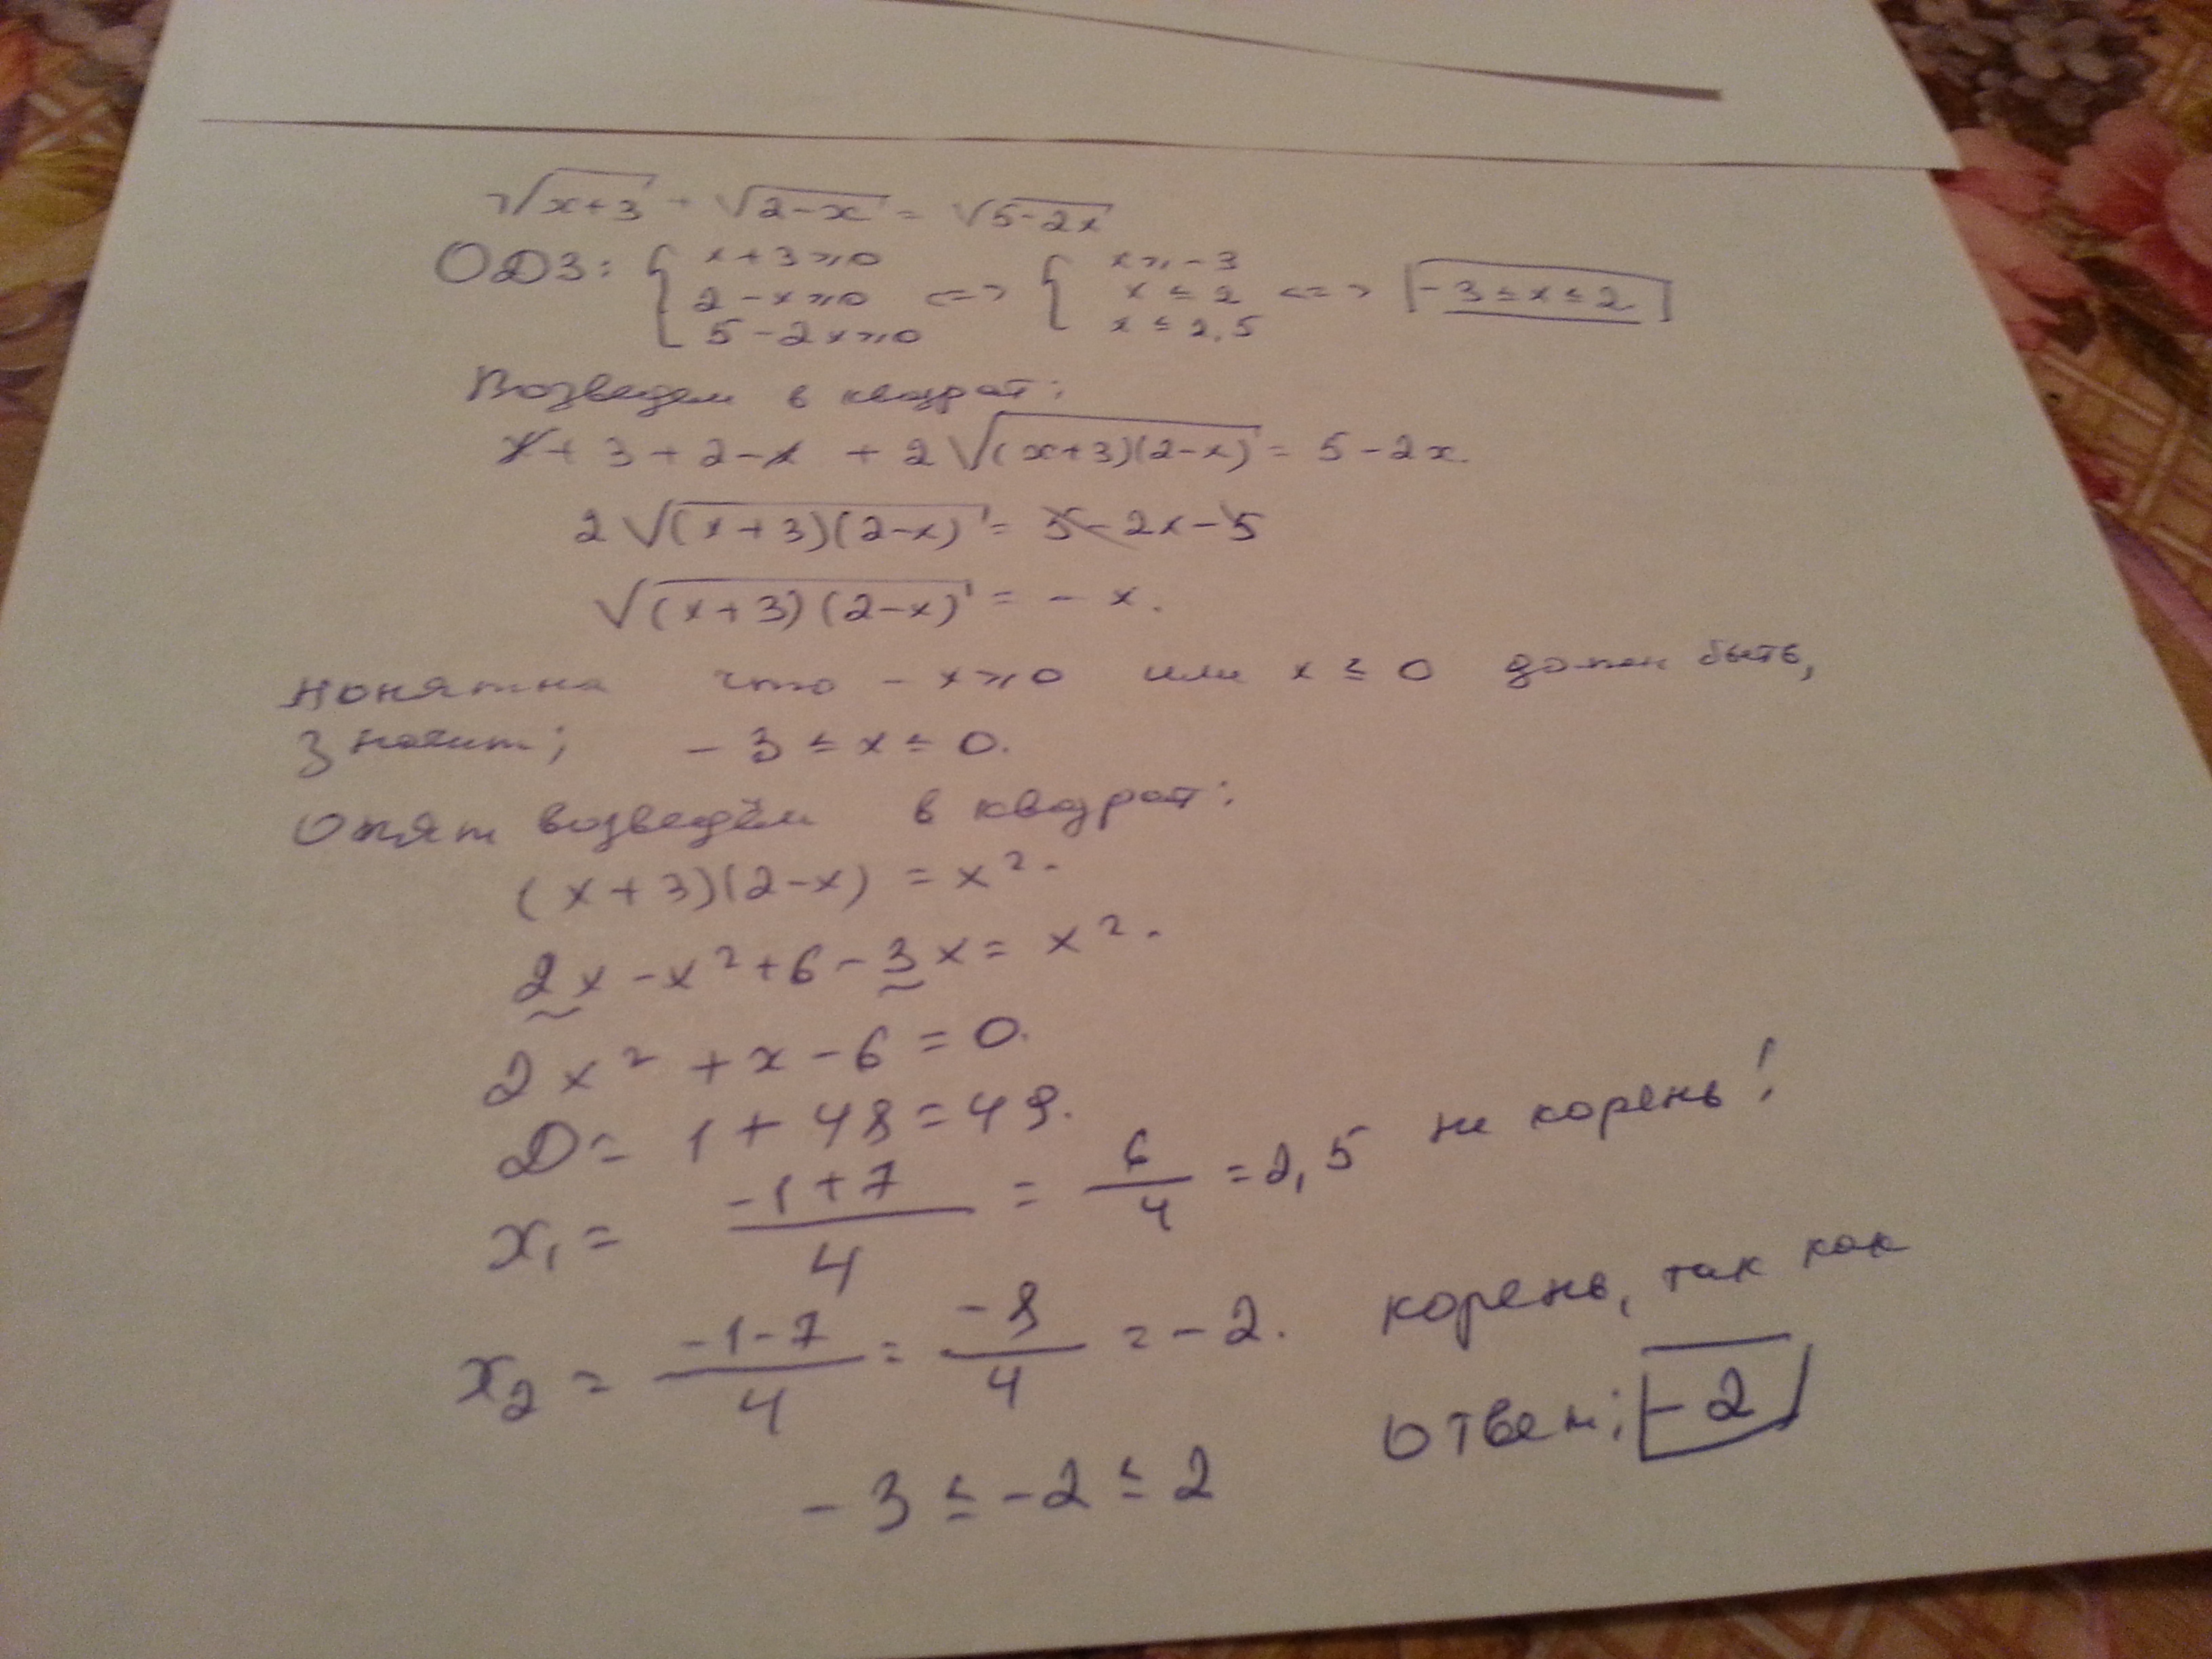 √x+3 + √2-x = √5-2x
ОДЗ: { x+3≥0 2-x≥0 5-2x≥0 <=> { x≥-3 x≤2 x≤2,5 <=> -3≤x≤2
Возведем в квадрат:
x+3+2-x + 2√(x+3)(2-x) = 5-2x.
2√(x+3)(2-x) = 5-2x-5
√(x+3)(2-x) = -x.
понятна что -x≥0 или x≤0 должен быть,
Значит; -3≤x≤0.
Опят возведём в квадрат:
(x+3)(2-x) = x².
2x-x²+6-3x = x².
2x²+x-6=0.
D= 1+48=49.
x₁= -1+7/4 = 6/4 =2,5 не корень!
x₂= -1-7/4 = -8/4 = -2. корень, так как
-3≤-2≤2 ответ: -2